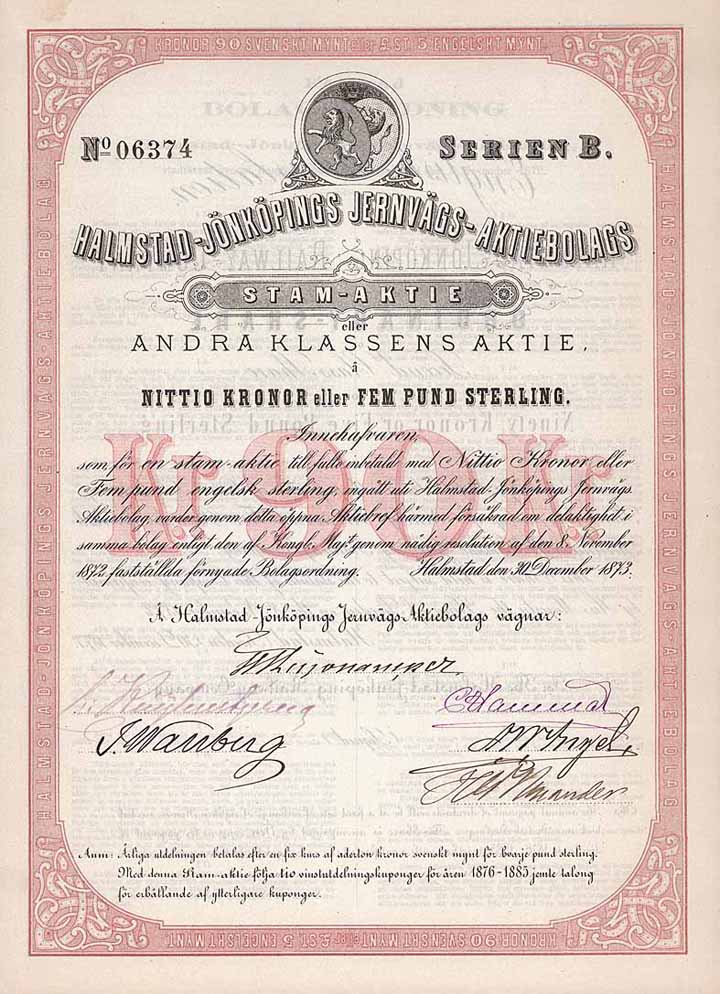 KRONOR 90 SVENSKT MYNT eller £ ST. 5 ENGELSKT MYNT.
No 06374
SERIEN B.
HALMSTAD-JÖNKÖPINGS JERNVÄGS-AKTIEBOLAGS
STAM-AKTIE
eller
ANDRA KLASSENS AKTIE,
å
NITTIO KRONOR eller FEM PUND STERLING.
Kr. 90 Kr.
Innehafvaren,
som för en stam-aktie till fullo inbetald med Nittio Kronor eller
Fem pund engelsk sterling, ingått uti Halmstad-Jönköpings Jernvägs
Aktiebolag, varder genom detta öppna Aktiebref härmed försäkrad om delaktighet i
samma bolag enligt den af Kongl. Maj:t genom nådig resolution af den 8. November
1872 fastställda förnyade Bolagsordning. Halmstad den 30. December 1873.
Å Halmstad-Jönköpings Jernvägs Aktiebolags vägnar:
Anm: Årliga utdelningen betalas efter en fix kurs af aderton kronor svenskt mynt för hvarje pund sterling.
Med denna Stam-aktie följa tio vinstutdelningskuponger för åren 1876-1885 jemte talong
för erhållande af ytterligare kuponger.
HALMSTAD-JÖNKÖPINGS JERNVÄGS-AKTIEBOLAG
HALMSTAD-JÖNKÖPINGS JERNVÄGS-AKTIEBOLAG
KRONOR 90 SVENSKT MYNT eller £ ST. 5 ENGELSKT MYNT.